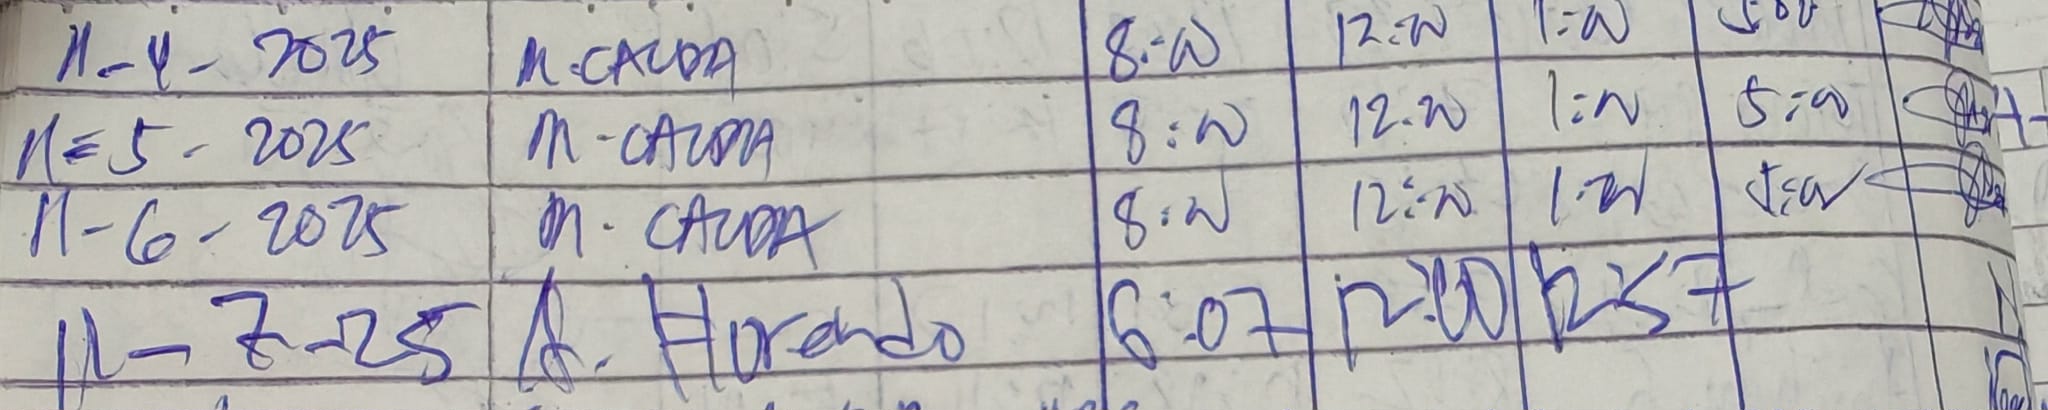 11-4-2025 M. CAUDA 8:00 12:00 1:00 5:00
11-5-2025 M-CAUDA 8:00 12:00 1:00 5:00
11-6-2025 M. CAUDA 8:00 12:00 1:00 5:00
11-7-25 A. 6:07 12:00 12:57